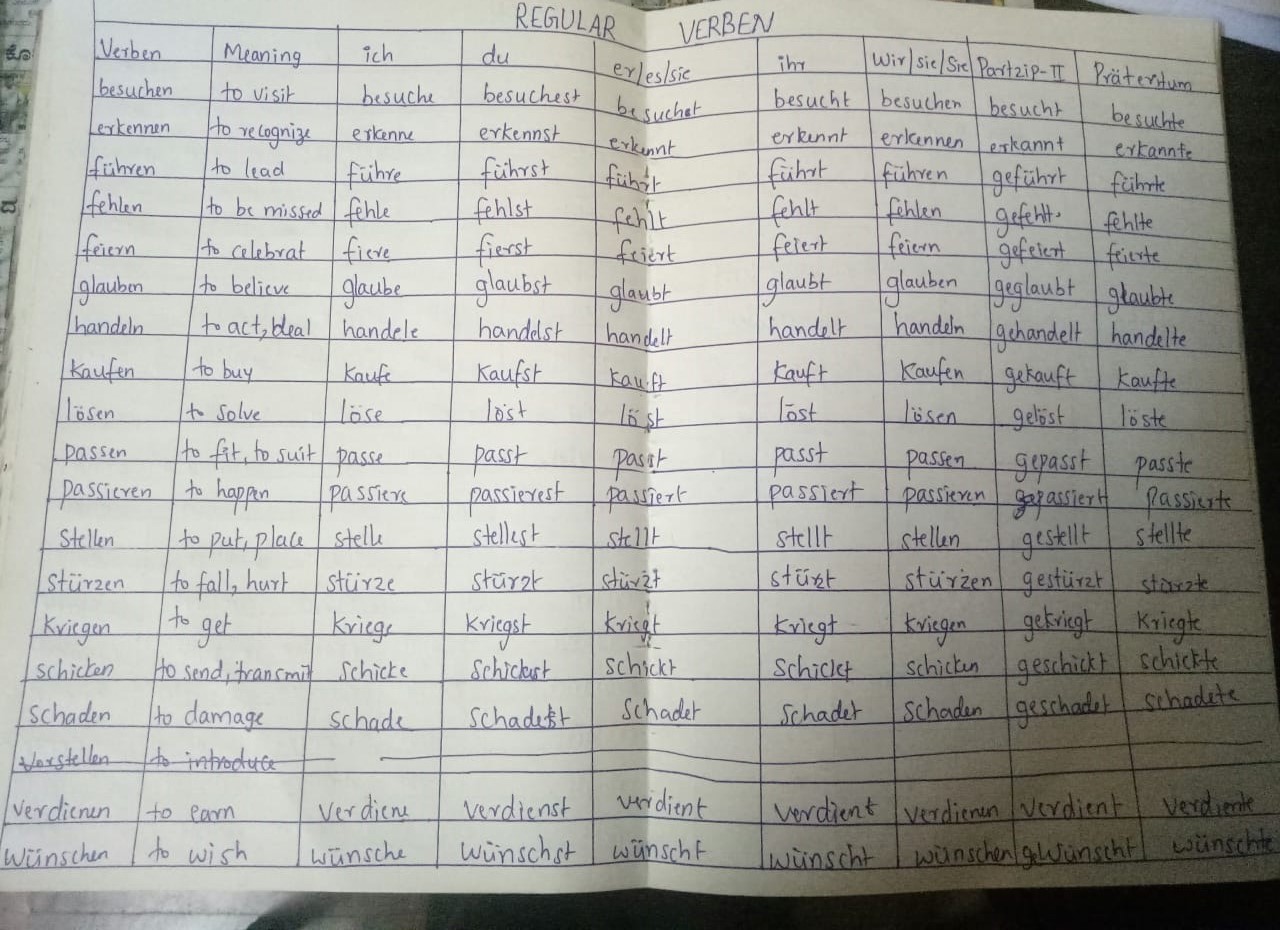 REGULAR VERBEN
Verben Meaning ich du er/es/sie ihr Wir/sie/Sie Partzip-II Präterium
besuchen to visit besuche besuchest besuchet besucht besuchen besucht besuchte
erkennen to recognize erkenne erkennst erkennt erkennt erkennen erkannt erkannte
führen to lead führe führst führt führt führen geführt führte
fehlen to be missed fehle fehlst fehlt fehlt fehlen gefehlt. fehlte
feiern to celebrat fiere fierst feiert feiert feiern gefeiert feierte
glauben to believe glaube glaubst glaubt glaubt glauben geglaubt glaubte
handeln to act, deal handele handelst handelt handelt handeln gehandelt handelte
kaufen to buy kaufe kaufst kauft kauft kaufen gekauft kaufte
lösen to solve löse löst löst löst lösen gelöst löste
passen to fit, to suit passe passt passt passt passen gepasst passte
passieren to happen passiere passierest passiert passiert passieren passiert passierte
stellen to put, place stelle stellest stellt stellt stellen gestellt stellte
stürzen to fall, hurt stürze stürzt stürzt stürzt stürzen gestürzt stürzte
kriegen to get kriege kriegst kriegt kriegt kriegen gekriegt kriegte
schicken to send, transmit schicke schickest schickt schickt schicken geschickt schickte
schaden to damage schade schadest schadet schadet schaden geschadet schadete
vorstellen to introduce
verdienen to earn verdiene verdienst verdient verdient verdienen verdient verdiente
wünschen to wish wünsche wünschst wünscht wünscht wünschen gewünscht wünschte